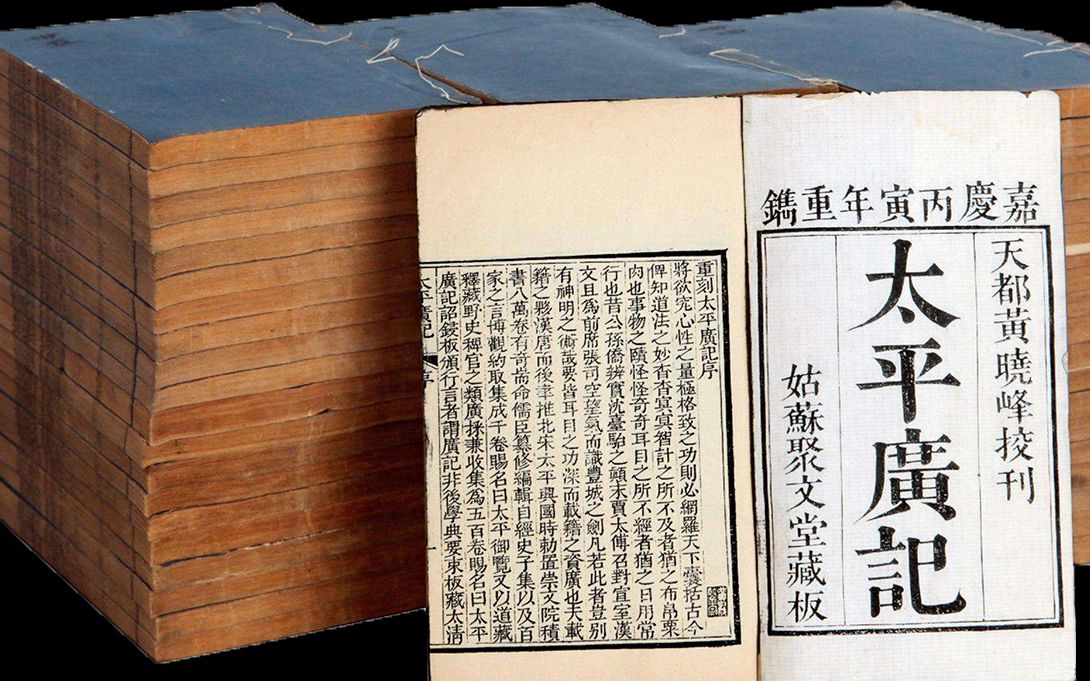 嘉慶丙寅年重鐫
天都黃曉峰挍刊
太平廣記
姑蘇聚文堂藏板
重刻太平廣記序
將欲完心性之量極格致之功則必網羅天下囊括古今
俾知道法之妙杳杳冥冥智計之所不及者猶之布帛粟
肉也事物之賾怪怪奇奇耳目之所不經者猶之日用常
行也昔公孫僑辨實沈臺駘之顛末賈太傅召對宣室漢
文且為前席張司空望氣而識豐城之劍凡若此者豈別
有神明之術哉要皆耳目之功深而載籍之資廣也夫載
籍之夥漢唐而後聿推北宋太平興國時勅置崇文院積
書八萬卷有奇耑命儒臣纂修編輯自經史子集以及百
家之言博觀約取集成千卷賜名曰太平御覽又以道藏
釋藏野史稗官之類廣採兼收集為五百卷賜名曰太平
廣記詔鋟板頒行言者謂廣記非後學典要束板藏太清
太平廣記 序 一